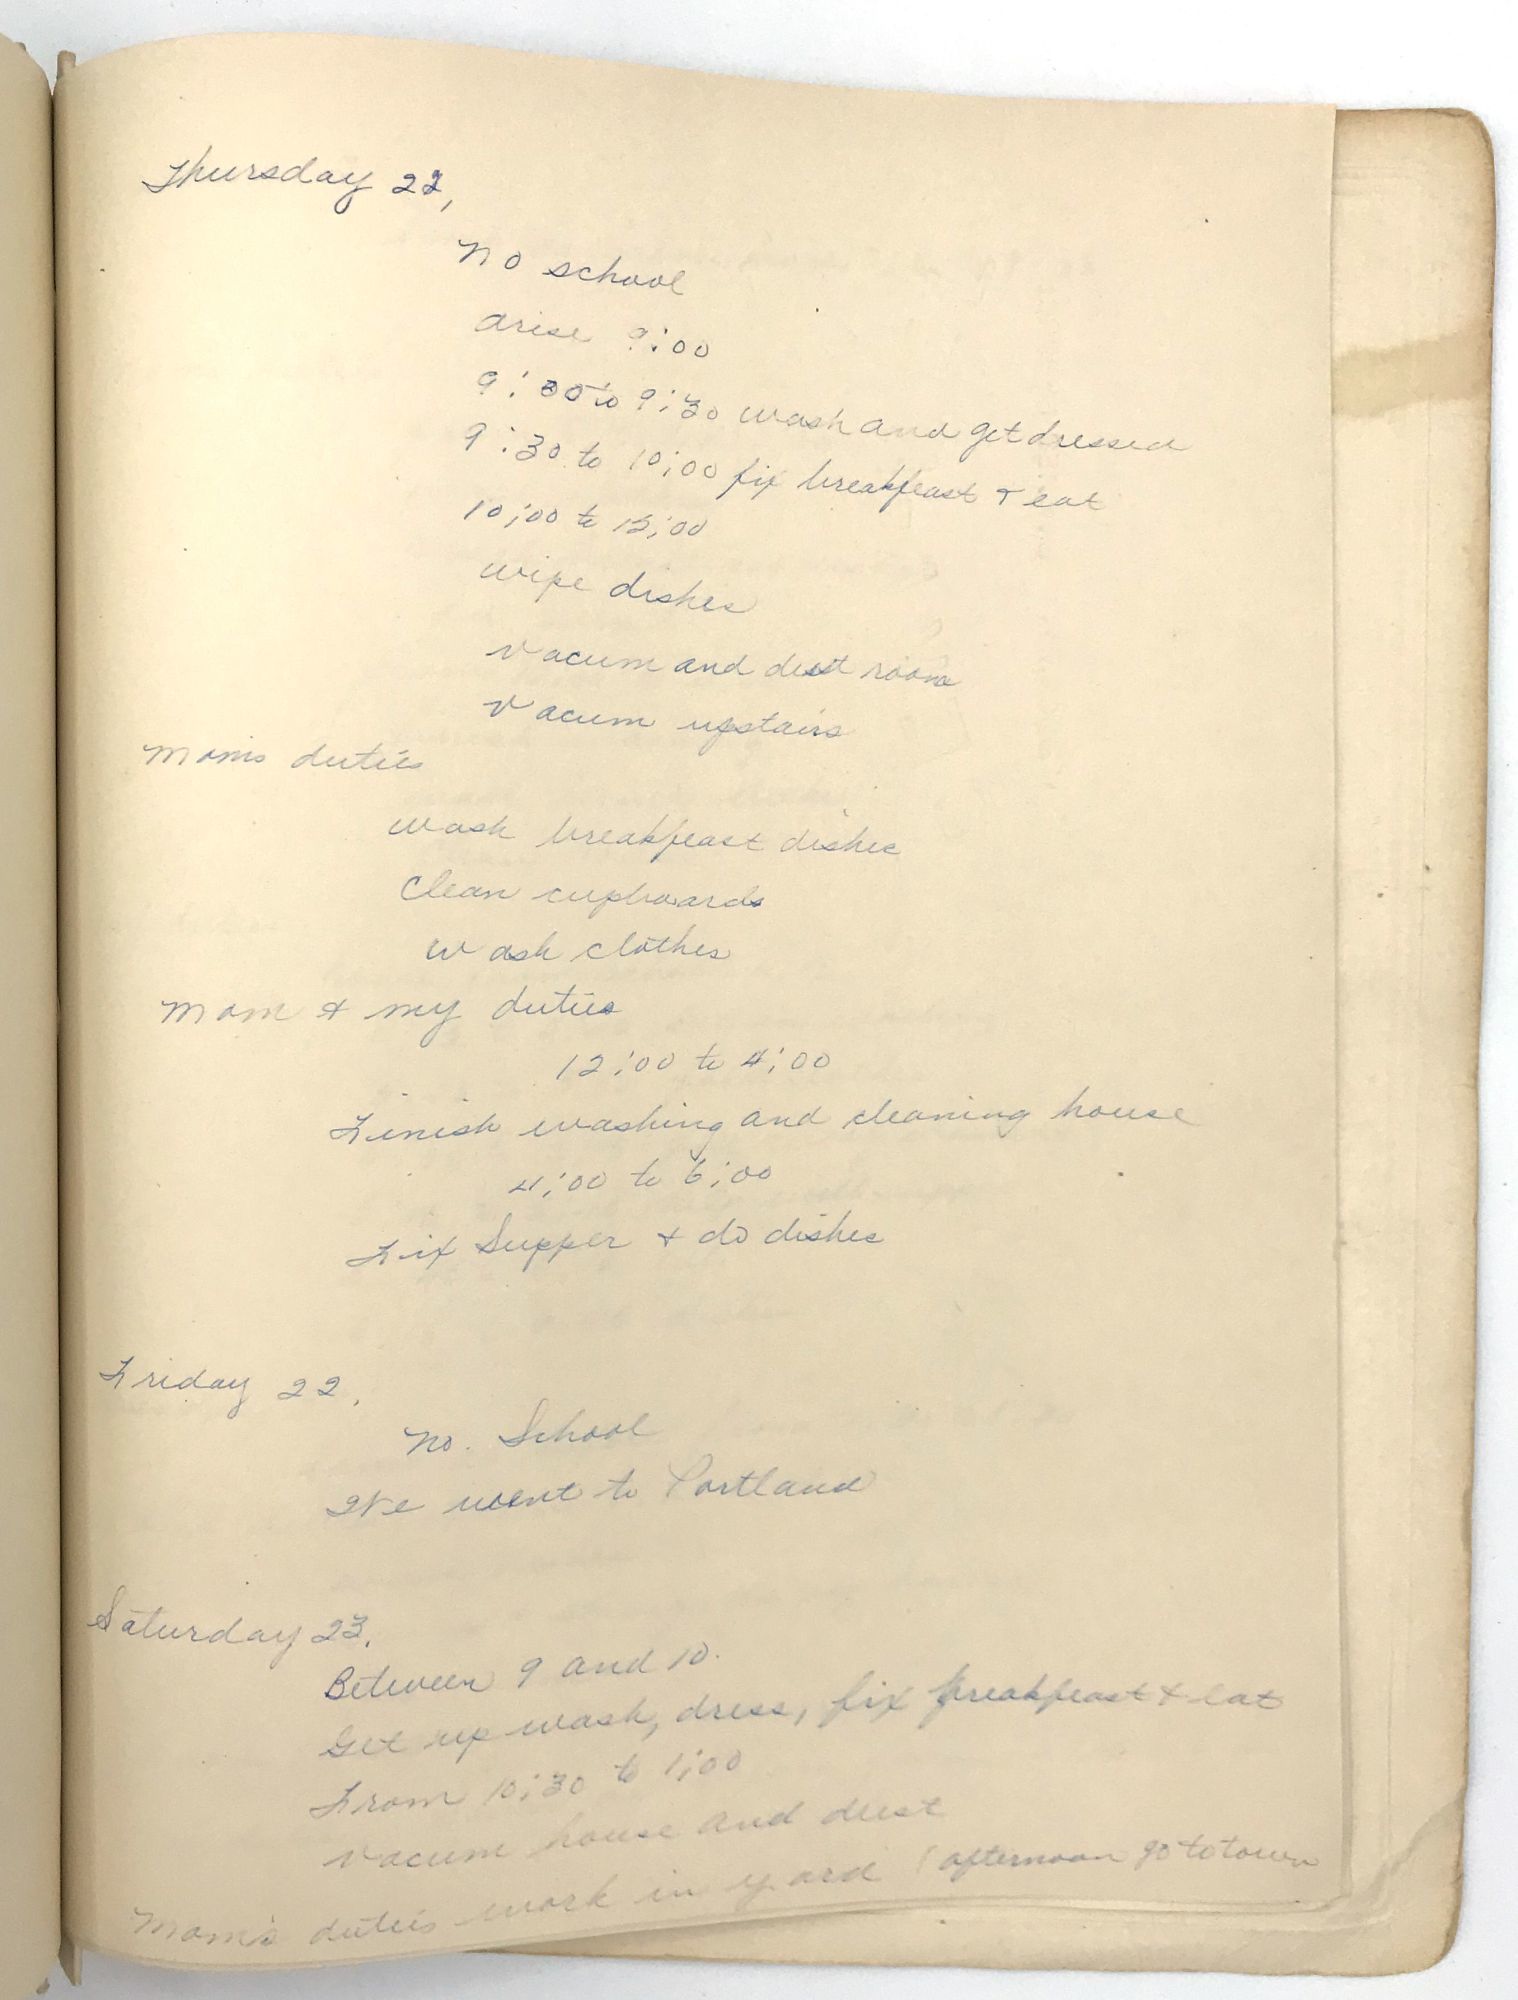 Thursday 22,
No school
arise 9:00
9:00 to 9:30 wash and get dressed
9:30 to 10:00 fix breakfeast & eat
10:00 to 12:00
wipe dishes
vacum and dust rooms
vacum upstairs
Mom's duties
wash breakfeast dishes
Clean cupboards
wash clothes
Mom & my duties
12:00 to 4:00
Finish washing and cleaning house
4:00 to 6:00
Fix Supper & do dishes
Friday 22.
No. School
We went to Portland
Saturday 23.
Between 9 and 10.
Get up wash, dress, fix breakfeast & eat
From 10:30 to 1:00
vacum house and dust
Mom's duties work in yard (afternoon go to town